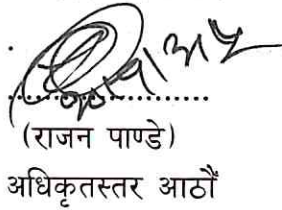 (राजन पाण्डे)
अधिकृतस्तर आठौं